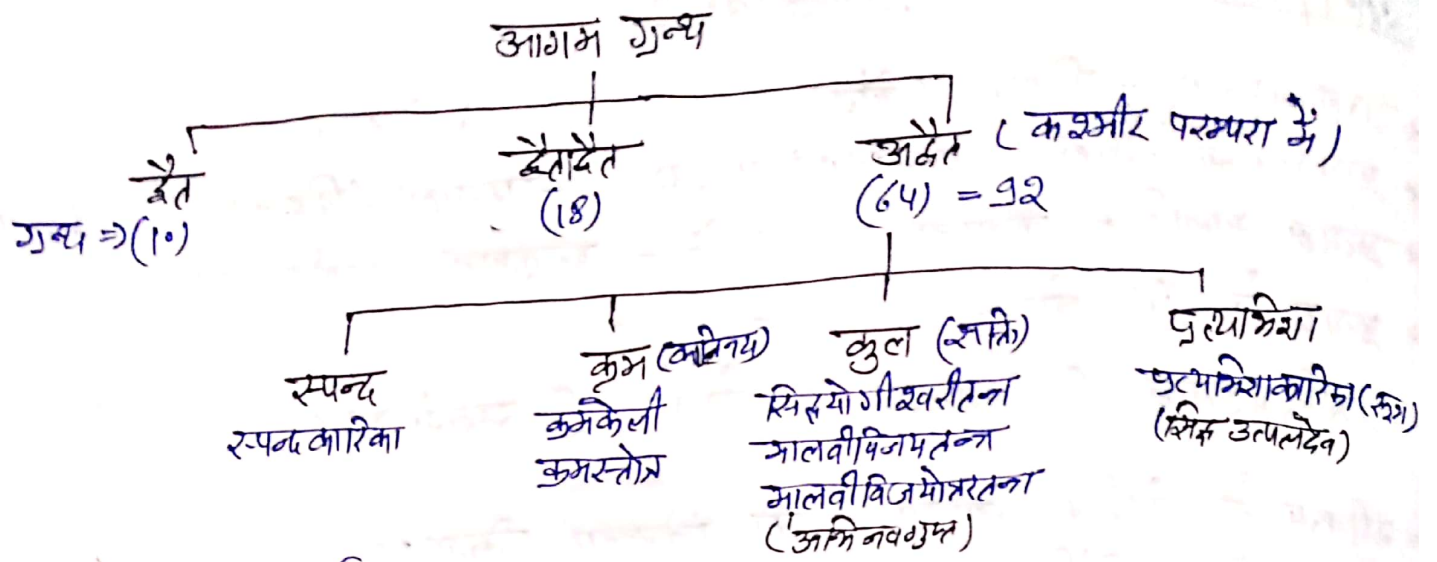 आगम ग्रन्थ
द्वैत
ग्रन्थ ⇒ (10)
द्वैताद्वैत
(18)
अद्वैत (कश्मीर परम्परा में)
(64) = ९२
स्पन्द
स्पन्दकारिका
क्रम
क्रमकेली
क्रमस्तोत्र
कुल (शक्ति)
सिद्धयोगीश्वरीतन्त्र
मालवीविजयतन्त्र
मालवीविजयोत्तरतन्त्र
(अभिनवगुप्त)
प्रत्यभिज्ञा
प्रत्यभिज्ञाकारिका (सूत्र)
(सिद्ध उत्पलदेव)